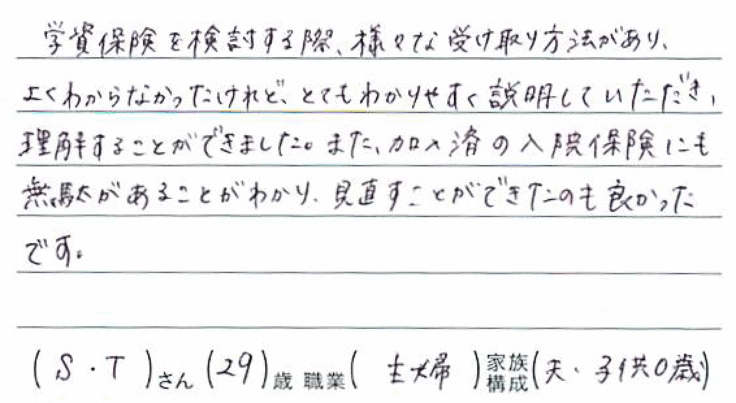 学資保険を検討する際、様々な受け取り方法があり、
よくわからなかったけれど、とてもわかりやすく説明していただき、
理解することができました。また、加入済の入院保険にも
無駄があることがわかり、見直すことができたのも良かった
です。
(S・T)さん(29)歳 職業(主婦)家族構成(夫・子供0歳)